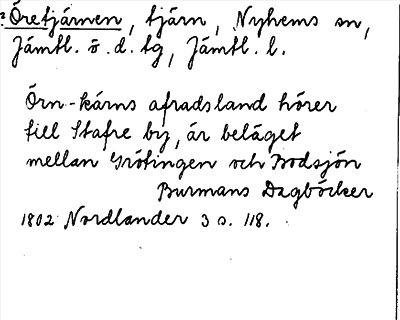 ? Öretjärnen, tjärn, Nyhems sn,
Jämtl. ö. d. tg, Jämtl. l.
Örn-kärns afradsland hörer
till Stafre by, är beläget
mellan Grötingen och Bodsjön
Burmans Dagböcker
1802 Nordlander 3 s. 118.